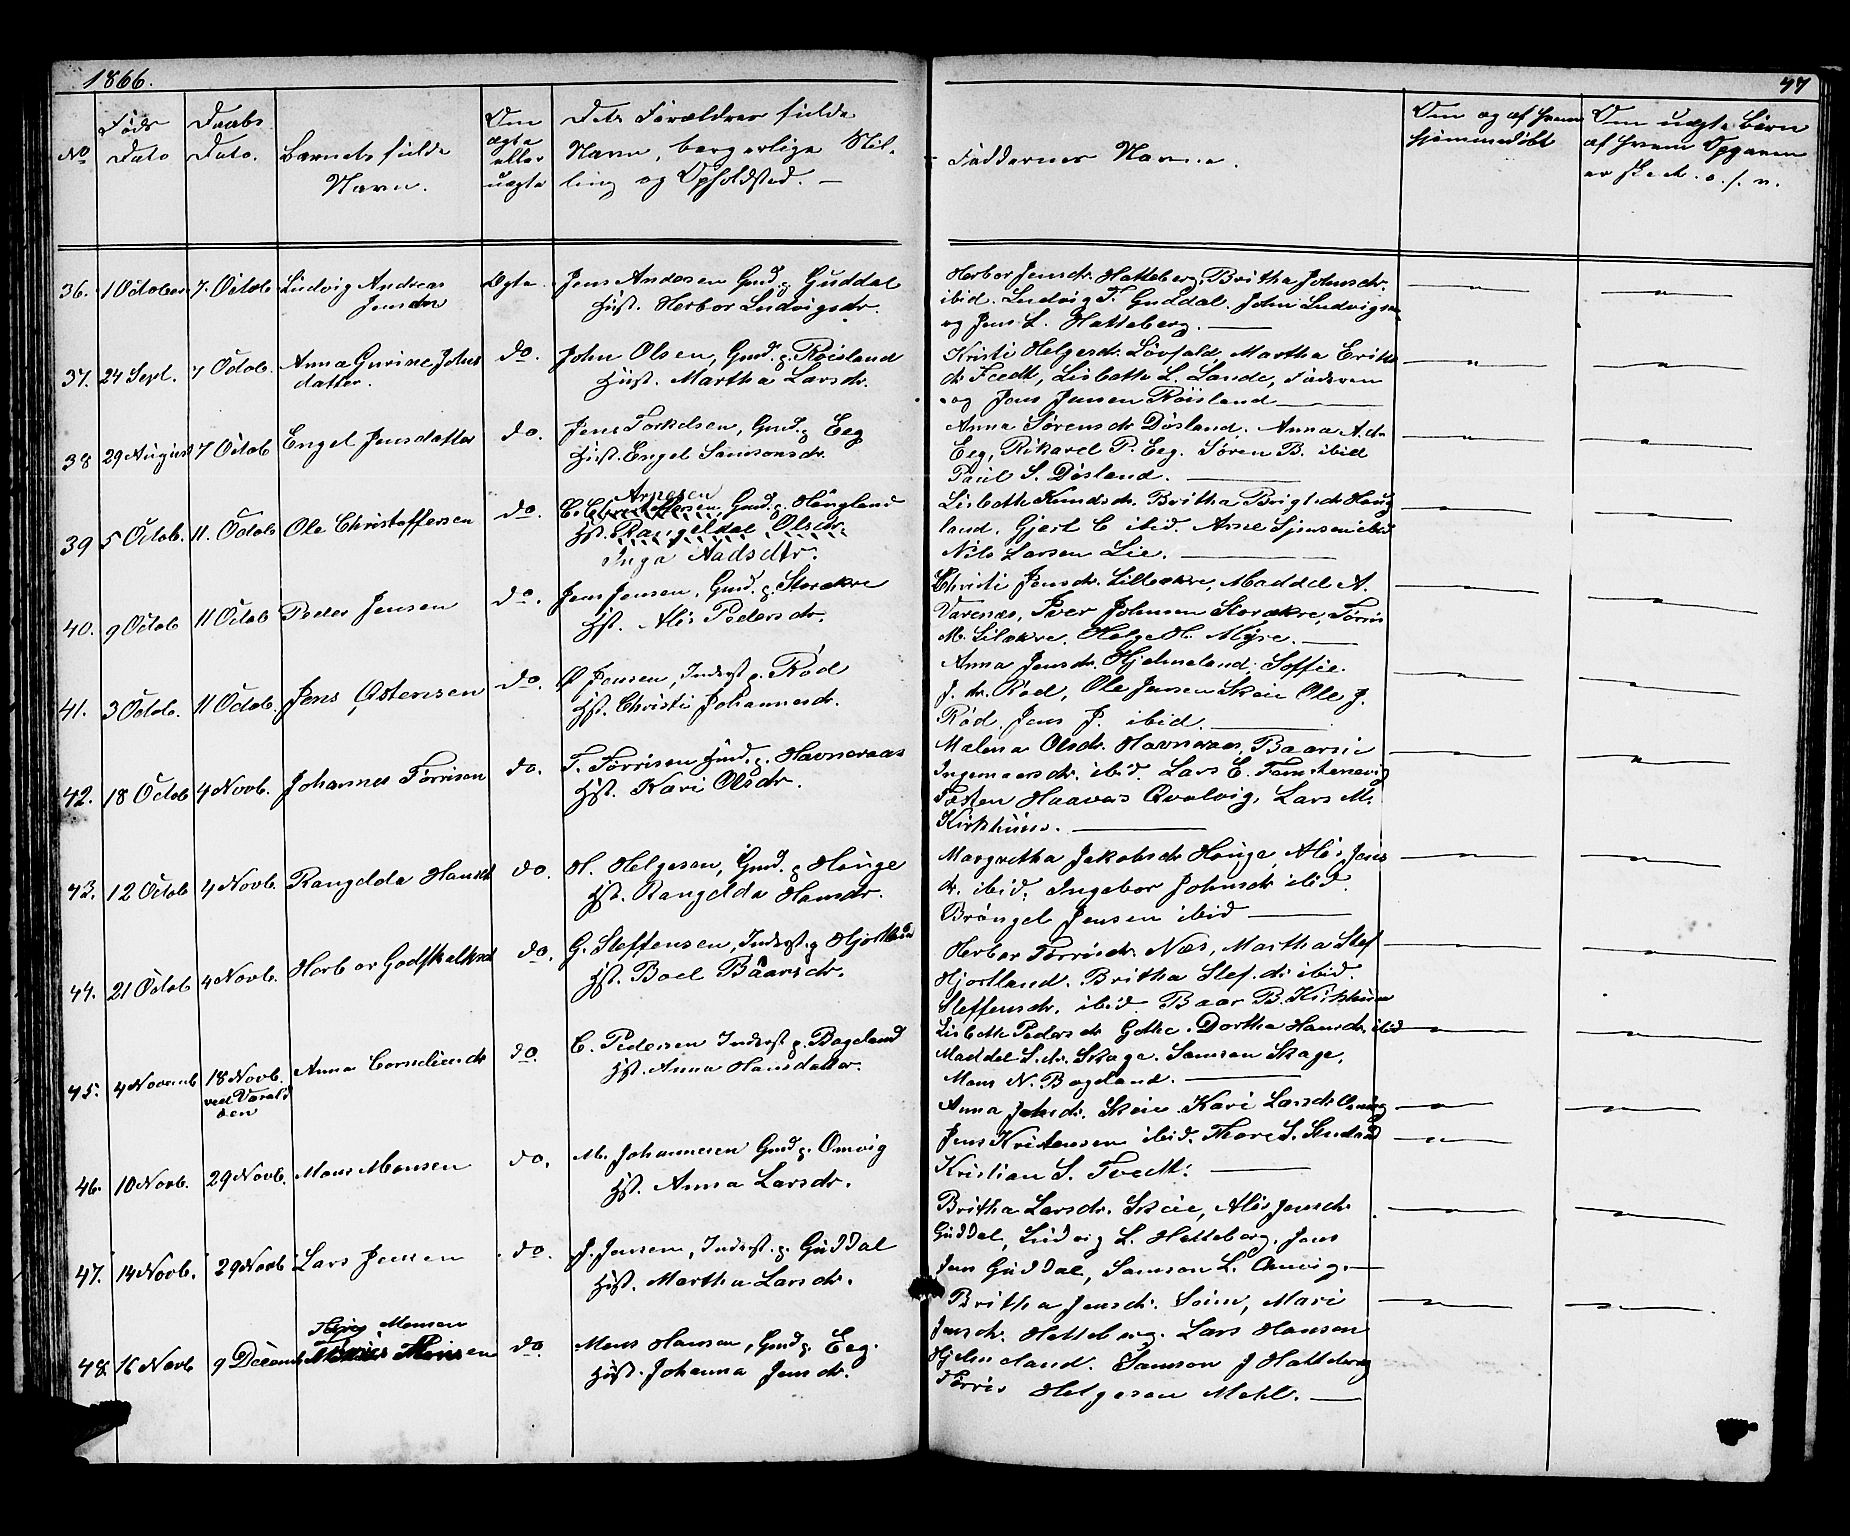 1866.
47
No
Føds Dato
Daabs Dato.
Barnets fulde Navn.
Om ægte eller uægte
Dets Forældres fulde
Navn, borgerlige Stil-
ling og Opholdsted. —
Faddernes Navne.
Om og af hvem
hjemmedøbt
Om uægte Børn
af hvem Opgaven
er skedt. o. s. v.
36. 1 October 7. Octob Ludvig Andreas Ægte. Jens Andersen Gmd. p. Guddal
Jensen Hust. Herbor Ludvigsdr.
Herbor Jensdr. Hatteberg, Britha Johnsdr.
ibid. Ludvig T. Guddal. John Ludvigsen
og Jens L. Hatteberg. —
37. 24 Sept. 7 Octob. Anna Gurine Johns do. John Olsen, Gmd. p. Røisland
datter. Hust. Martha Larsdr.
Kristi Helgesdr. Løvfald, Martha Eriks
dr. Tvedt, Lisbeth L. Lande, Faderen
og Jens Jensen Røisland —
38 29 August 7 Octob Engel Jensdatter do. Jens Torkelsen, Gmd. p. Eeg
Hust. Engel Samsonsdr.
Anna Sørensdr Døsland, Anna A.dr
Eeg, Rikard P. Eeg. Søren B. ibid
Paul S. Døsland. —
39 5 Octob. 11. Octob Ole Christoffersen do. Arnesen
C. Christoffersen, Gmd. p. Haugland
Hst. Rangeldae Olsdr.
Inga Aadsdtr.
Lisbeth Knudsdr. Britha Brigt.dr Haug
land. Gjert C ibid. Arne Simensen ibid
Nils Larsen Lie. —
40. 9 Octob 11 Octob Peder Jensen do. Jens Jensen, Gmd. p. Storækre
Hst. Alis Pedersdr.
Christi Jensdr. Lilleækre, Maddel A.
Varenæs, Iver Johnsen Storækre, Tørris
M. Lilækre. Helge H. Myre. —
41. 3 Octob. 11 Octob. Jens Østensen do. Ø Jensen, Inderst p. Rød
Hst. Christi Johannesdr.
Anna Jensdr. Hjelmeland, Soffie.
J. dr. Rød, Ole Jensen Skeie Ole J.
Rød. Jens J. ibid. —
42. 18 Octob 4 Novb. Johannes Tørrisen do. T. Tørrisen Gmd. p. Havneraas
Hst. Kari Olsdr.
Malena Olsdr. Havneraas, Baarsie
Ingemarsdr. ibid. Lars E.
Tosten Haavers Qvalvig, Lars M.
Kirkhuus. —
43. 12 Octob 4 Novb. Rangelda Hansdr do. H. Helgesen, Gmd. p Hauge
Hst. Rangelda Hansdr.
Margretha Jakobsdr Hauge, Alis Jens
dr. ibid. Ingebor Johnsdr ibid.
Brøngel Jensen ibid —
44. 21 Octob 4 Novb. Herbor Godskalksd do. G. Steffensen, Inderst. p Hjortland
Hst. Boel Baarsdr.
Herbor Tørrisdr. Næs, Martha Stef
Hjortland. Britha Stef. dr ibid.
Steffensdr. ibid. Baar B. Kirkhuus
45. 4 Novemb 18 Novb. Anna Corneliusdr do. C. Pedersen Inderst p. Bogeland
ved Varalds
øen
Hst. Anna Hansdatter.
Lisbeth Pedersdr Gothe. Dorthe Hansdr. ibid
Maddel S. dr. Skage. Samson Skage,
Mons N. Bogeland. —
46. 10 Novb. 29 Novb. Mons Monsen do. M. Johannesen Gmd p. Omvig
Hst. Anna Larsdr.
Anna Johsdr. Skeie. Kari Larsdr Omvig
Jens Kristensen ibid. Thore S.
Kristian S. Tvedt: —
47. 14 Novb. 29 Novb Lars Jensen do. J. Jensen, Inderst. p. Guddal
Hust. Martha Larsdr.
Britha Larsdr. Skeie, Alis Jensdr
Guddal, Ludvig L. Hatteberg. Jens
Jens Guddal, Samson L. Omvig. —
48. 16 Novb 9 Decemb Monsen do. Mons Hansen, Gmd p. Eeg.
Hust. Johanna Jensdr.
Britha Jensdr. Seim, Mari
Jensdr. Hatteberg. Lars Hansen
Hjelmeland. Samson J Hatteberg
Tørris Helgesen Mehl. —